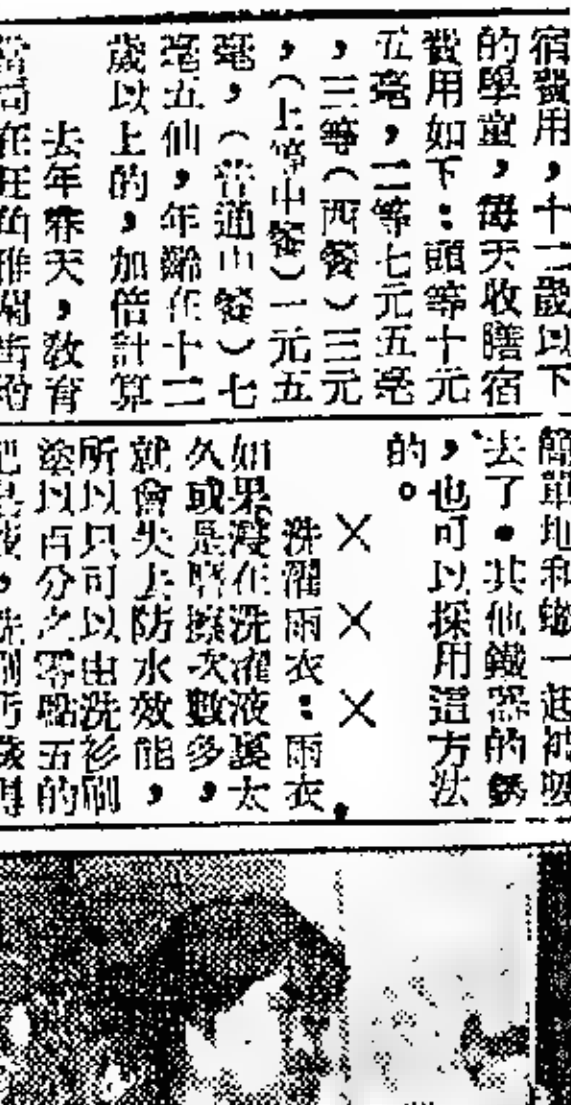 宿費用，十二歲以下
的學童，每天收膳宿
費用如下：頭等十元
五毫，二等七元五毫
，三等（西餐）三元
，（上等中餐）一元五
毫，（普通中餐）七
毫五仙，年齡在十二
歲以上的，加倍計算
去年春天，教育
當局在旺角雅蘭街
簡單地和蠟一起被吸
去了。其他鐵器的銹
，也可以採用這方法
的。
×××
洗濯雨衣：雨衣
如果浸在洗濯液裏太
久或是磨擦次數多，
就會失去防水效能，
所以只可以由洗衫刷
塗以百分之零點五的
，洗刷污